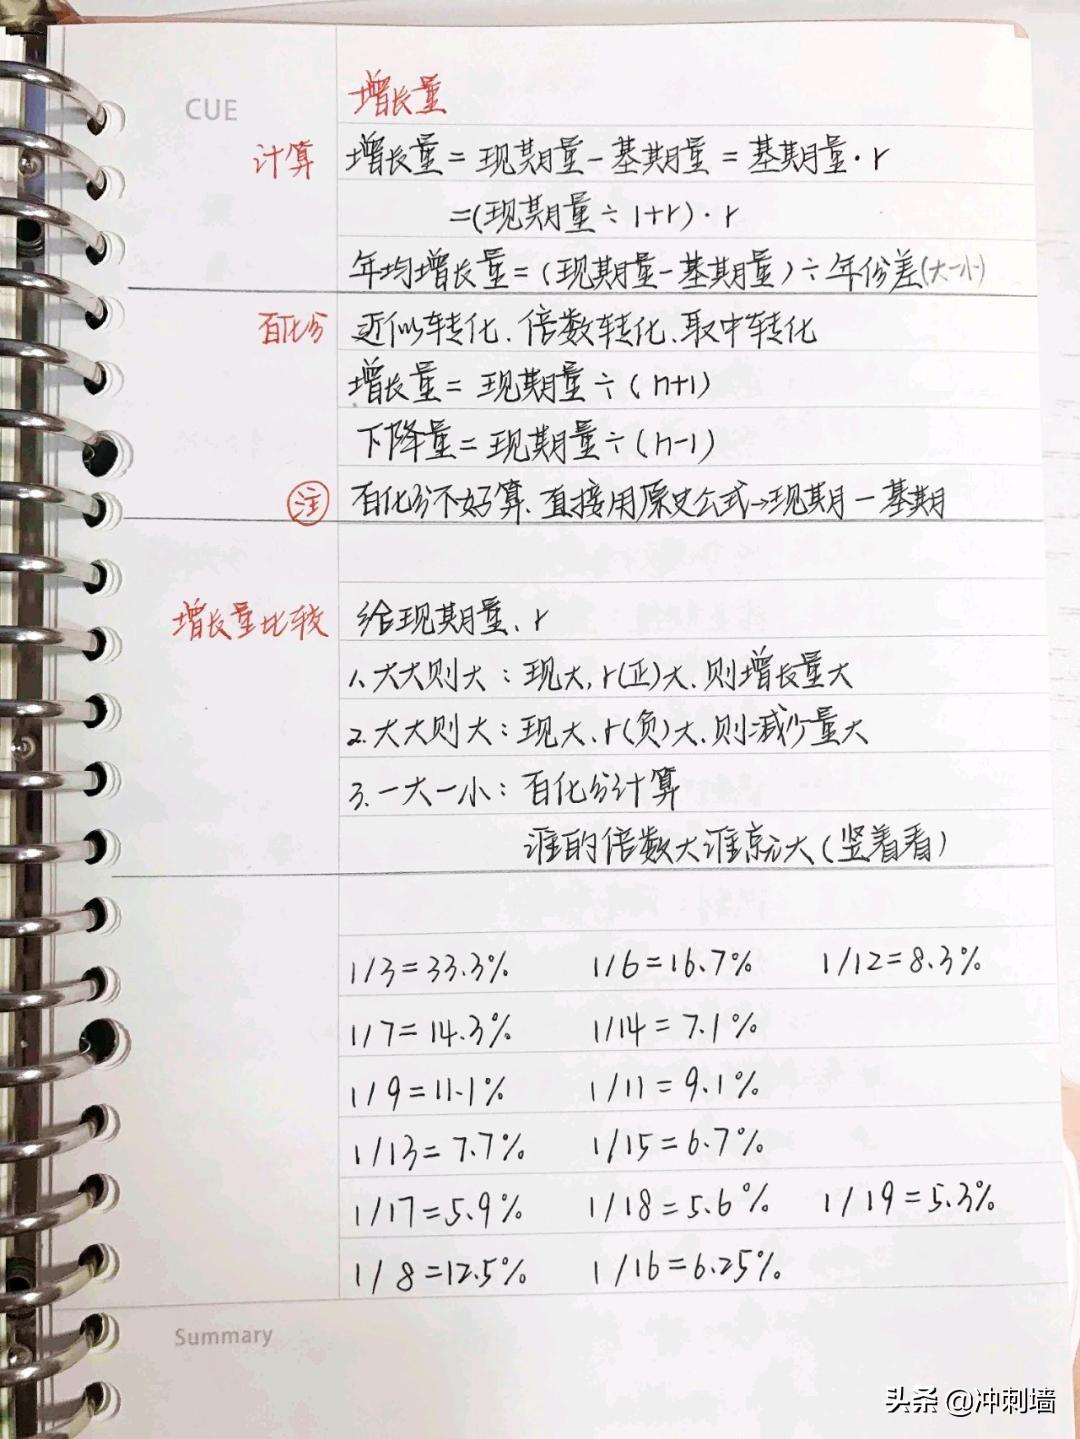 CUE
增长量
计算 增长量=现期量-基期量=基期量·r
=(现期量÷1+r)·r
年均增长量=(现期量-基期量)÷年份差(大-小)
百化分 近似转化、倍数转化、取中转化
增长量=现期量÷(n+1)
下降量=现期量÷(n-1)
注 百化分不好算、直接用原史公式→现期-基期
增长量比较 给现期量、r
1、大大则大:现大,r(正)大、则增长量大
2、大大则大:现大、r(负)大、则减少量大
3、一大一小:百化分计算
谁的倍数大谁就大(竖着看)
1/3=33.3% 1/6=16.7% 1/12=8.3%
1/7=14.3% 1/14=7.1%
1/9=11.1% 1/11=9.1%
1/13=7.7% 1/15=6.7%
1/17=5.9% 1/18=5.6% 1/19=5.3%
1/8=12.5% 1/16=6.25%
Summary
头条 @冲刺墙